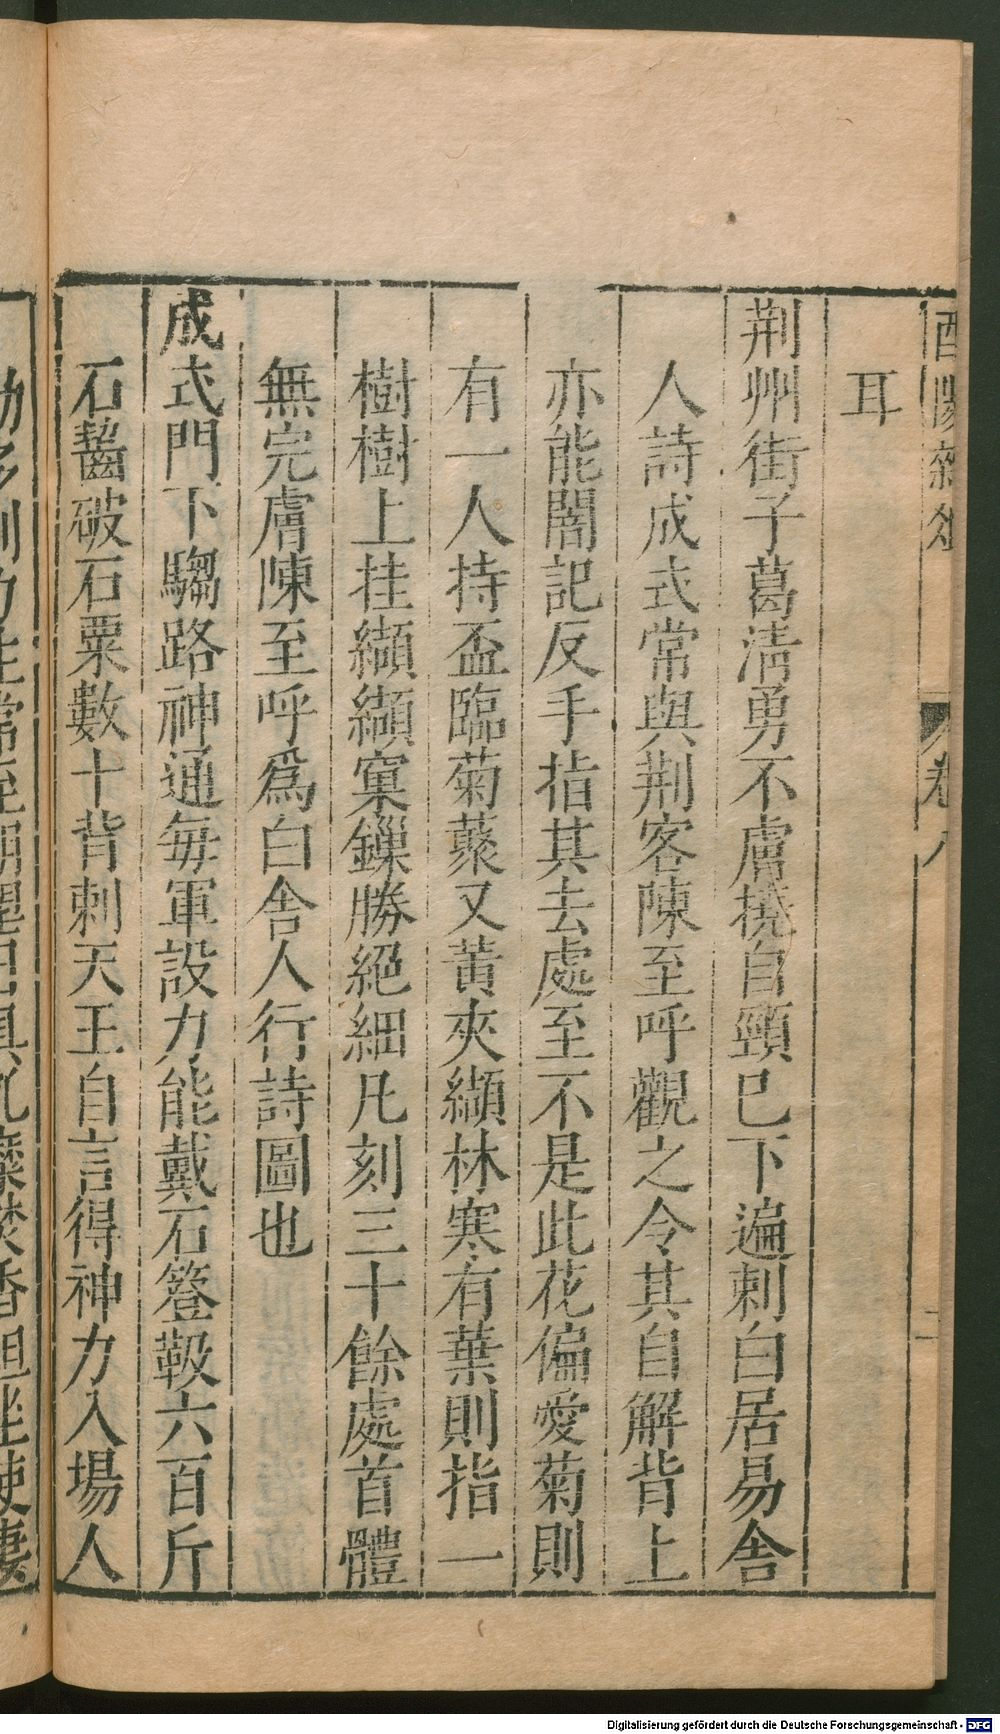 酉陽雜俎 卷八 二
耳
荆州街子葛清勇不膚撓自頸已下遍刺白居易舍
人詩成式常與荆客陳至呼觀之令其自解背上
亦能闇記反手指其去處至不是此花偏愛菊則
有一人持盃臨菊藂又黃夾纈林寒有葉則指一
樹樹上挂纈纈窠鏁勝絕細凡刻三十餘處首體
無完膚陳至呼爲白舍人行詩圖也
成式門下騶路神通每軍設力能戴石簦靸六百斤
石齧破石粟數十背刺天王自言得神力入場人
Digitalisierung gefördert durch die Deutsche Forschungsgemeinschaft - DFG